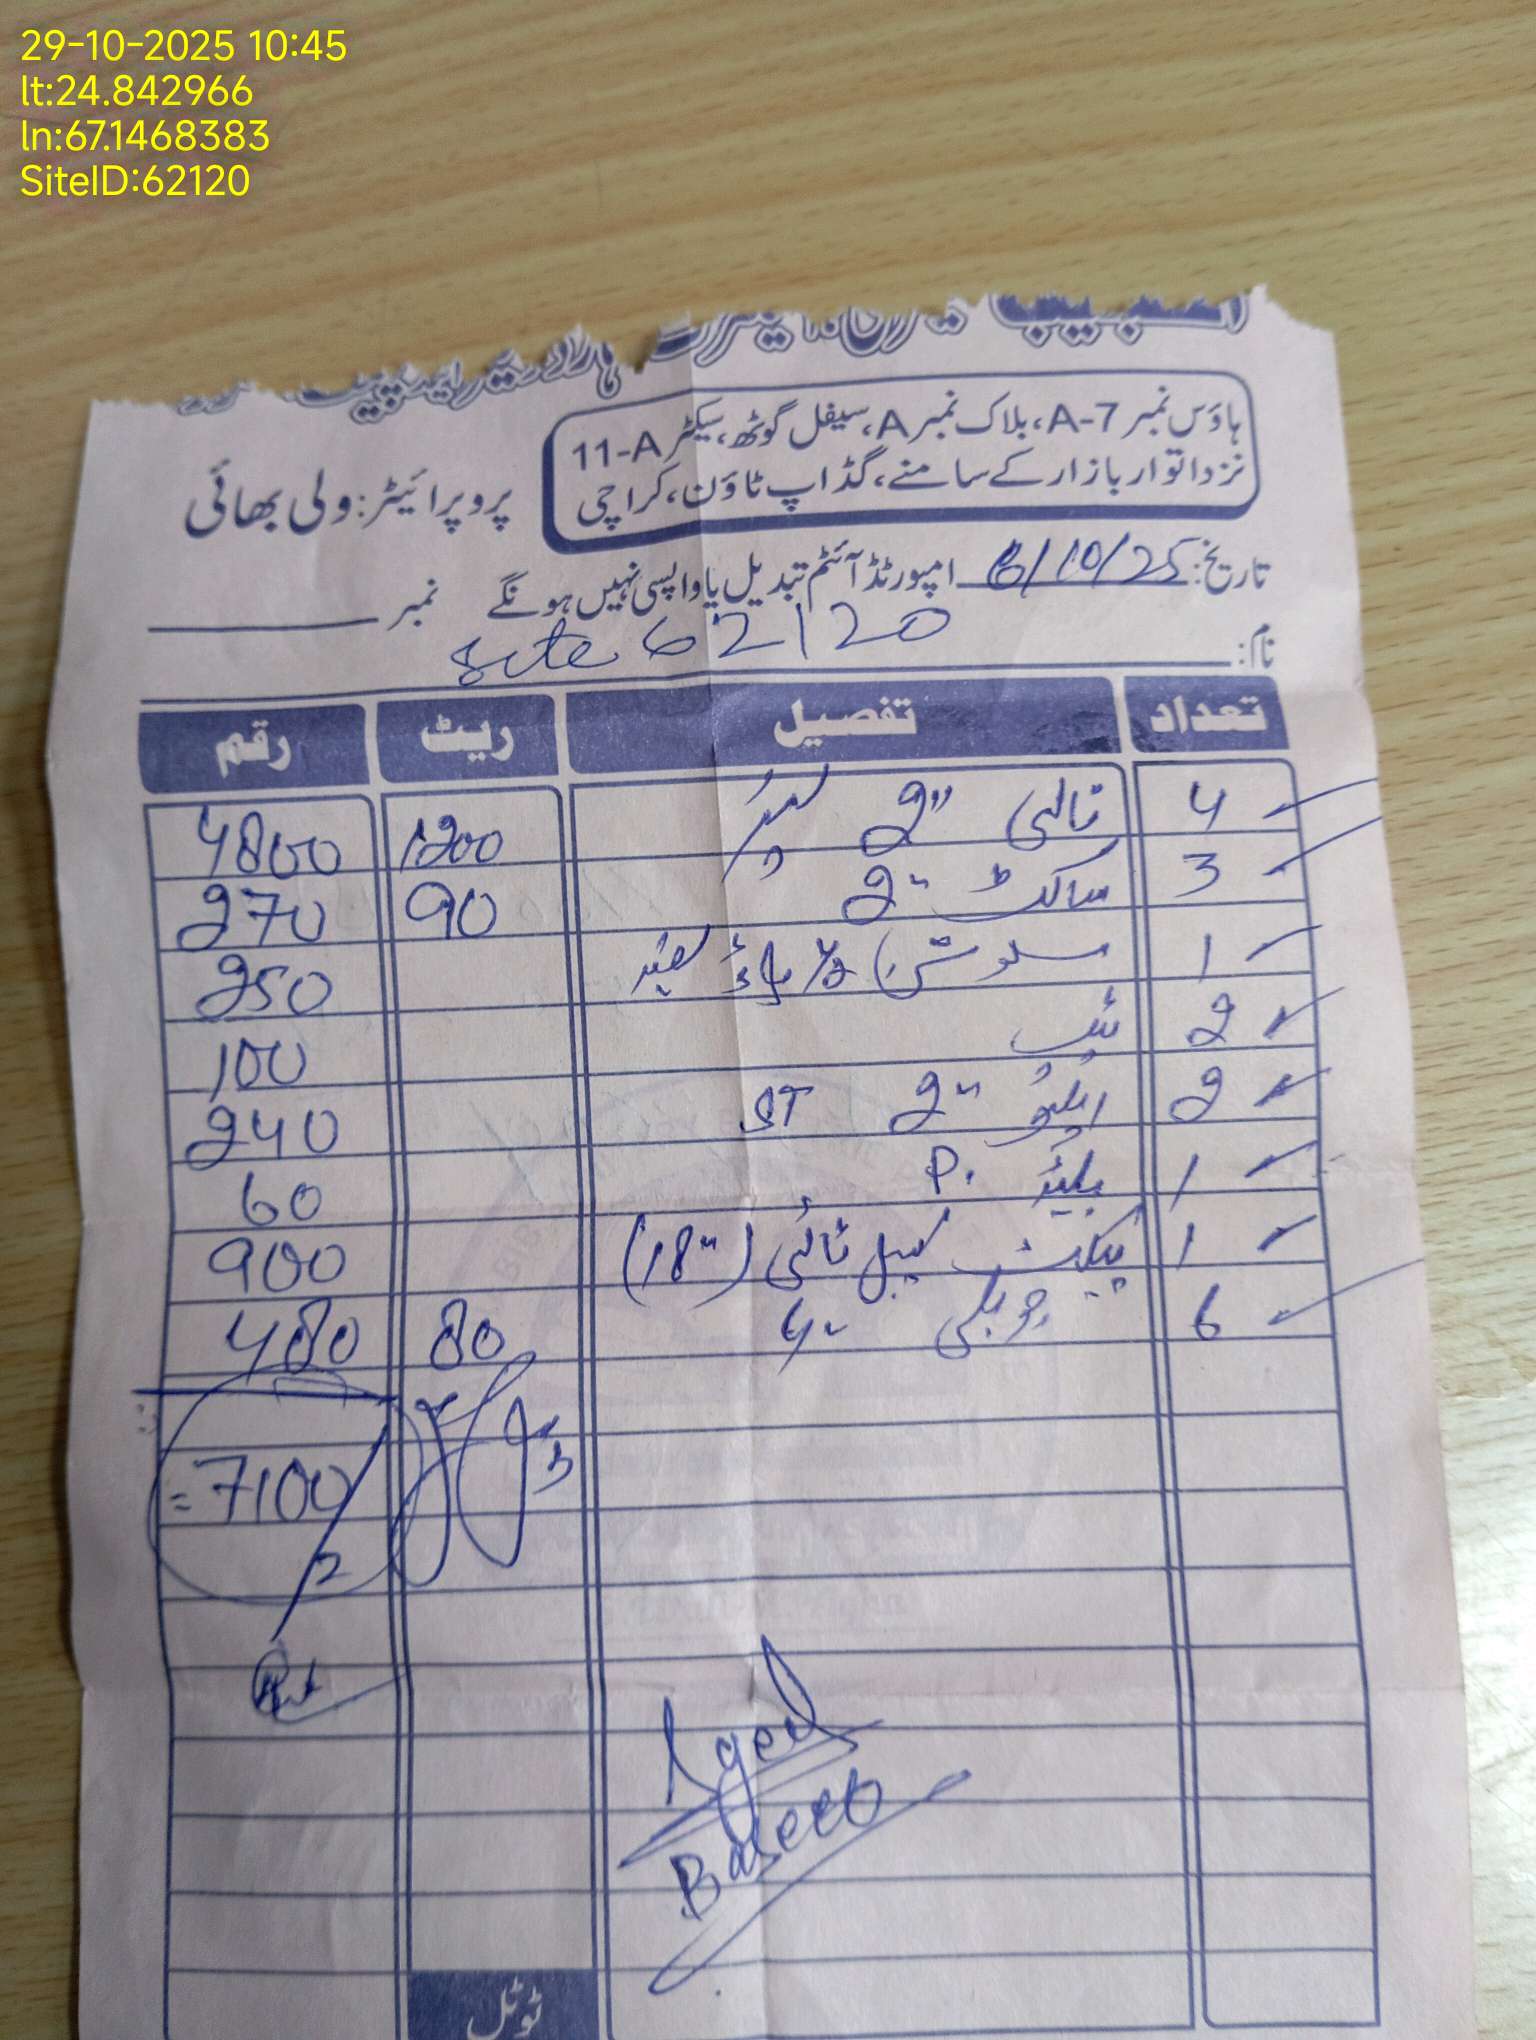 29-10-2025 10:45
lt:24.842966
ln:67.1468383
SiteID:62120
ہاؤس نمبر A-7، بلاک نمبر A، سیفل گوٹھ، سیکٹر 11-A
نزد اتوار بازار کے سامنے، گڈاپ ٹاؤن، کراچی
پروپرائیٹر: ولی بھائی
تاریخ: /10/25 امپورٹڈ آئٹم تبدیل یا واپسی نہیں ہونگے نمبر
نام: site 62120
تعداد تفصیل ریٹ رقم
4 نالی 2" 1200 4800
3 ساکٹ 2" 90 270
1 سلوشن 250
2 ٹیپ 100
2 ایلبو 2" ST 240
1 بلیڈ P. 60
1 پیکٹ کیبل ٹائی (18") 900
6 جوبلی 4" 80 480
=7100
ٹوٹل